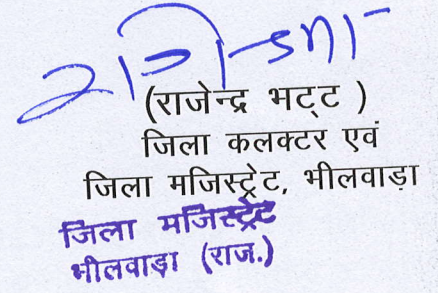 (राजेन्द्र भट्ट )
जिला कलक्टर एवं
जिला मजिस्ट्रेट, भीलवाड़ा
जिला मजिस्ट्रेट
भीलवाड़ा (राज.)